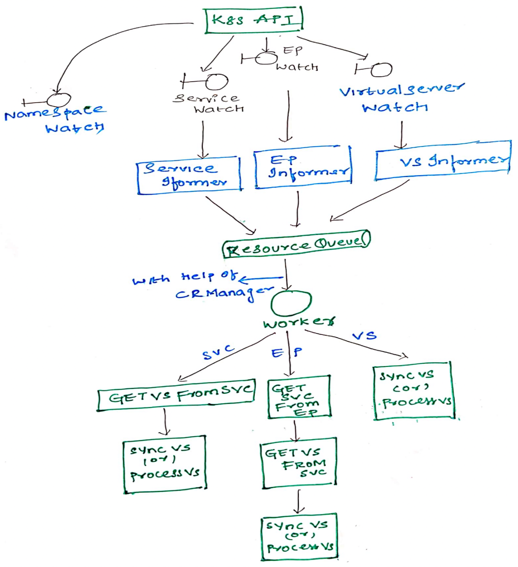 K8s API
EP
Watch
Service
Watch
Namespace
Watch
VirtualServer
Watch
Service
Iformer
EP
Informer
VS Informer
Resource Queue
With Help of
CRManager
Worker
SVC
EP
VS
GET VS From SVC
GET
SVC
From
EP
Sync VS
(or)
Process VS
Sync VS
(or)
Process VS
GET VS
FROM
SVC
Sync VS
(or)
Process VS